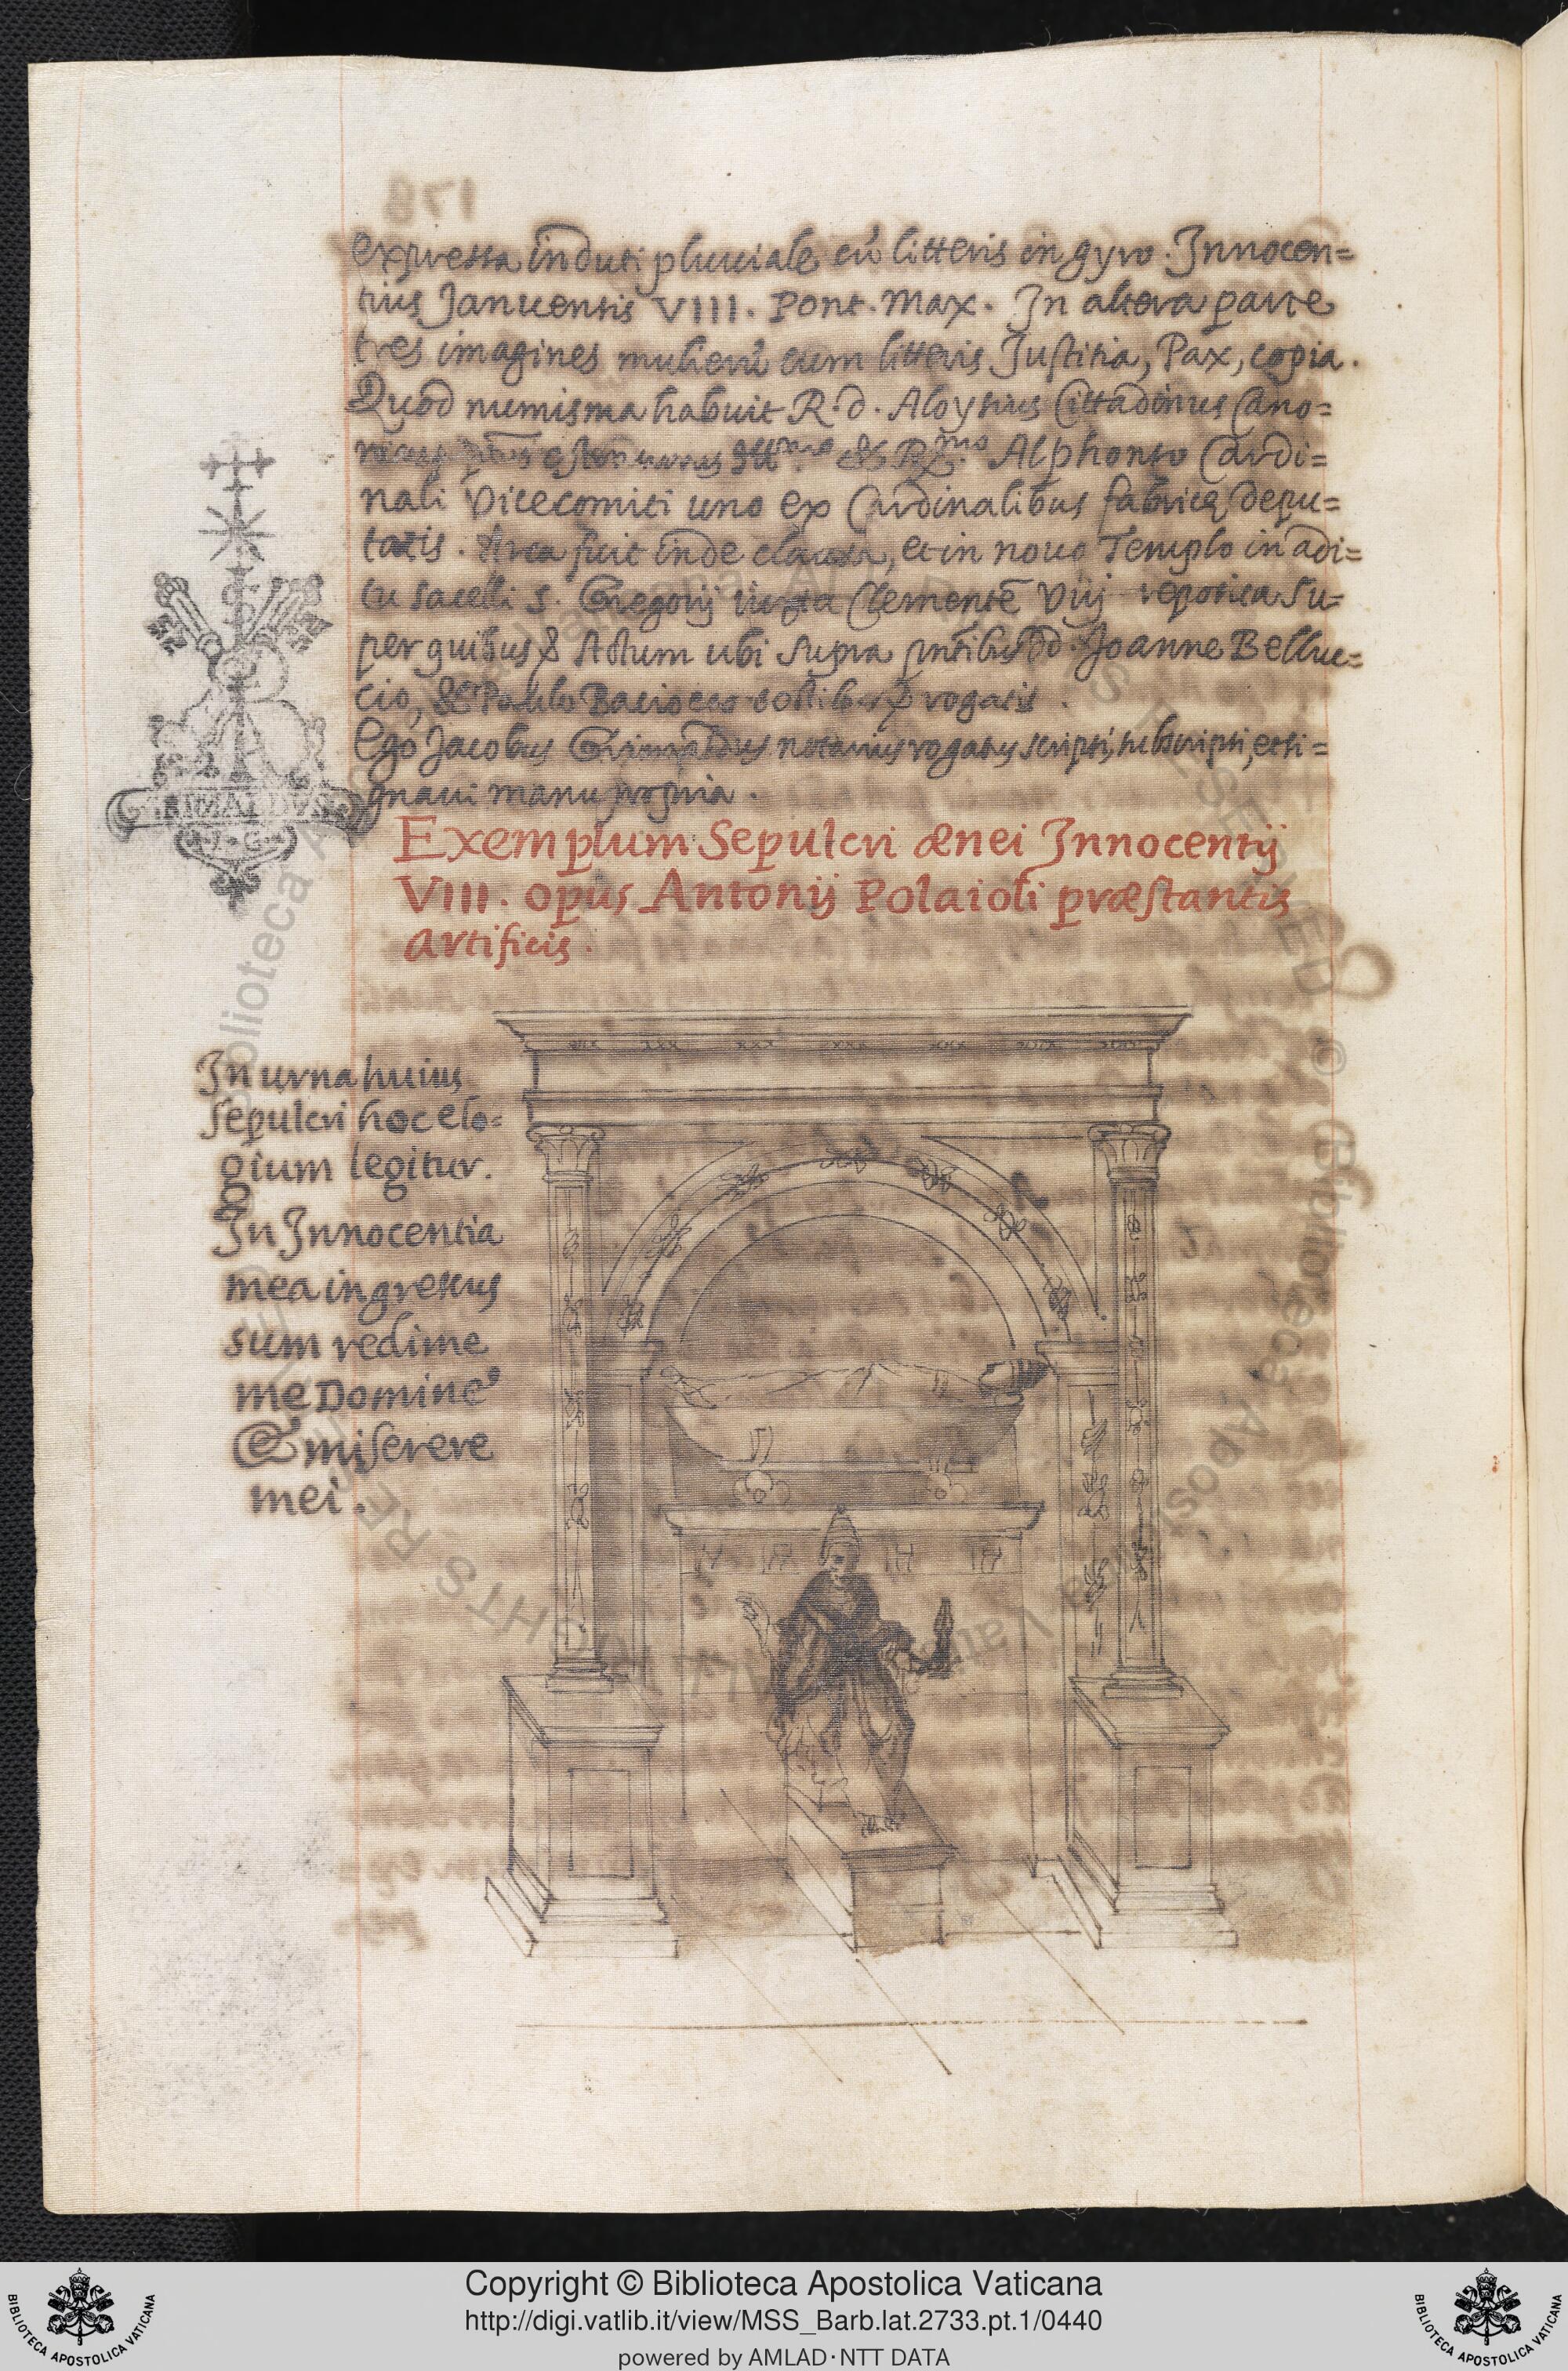 expressa induti pluuiale cū litteris in gyro. Innocen=
tius Januensis VIII. Pont. Max. In altera parte
tres imagines mulierū cum litteris Justitia, Pax, copia.
Quod numisma habuit R. d. Aloysius Cittadinus Cano=
Ill.mo & R.mo Alphonso Cardi=
nali Vicecomiti uno ex Cardinalibus fabricę depu=
tatis. Arca fuit inde clausa, et in nouo Templo in adi=
tu sacelli S. Gregorij iuxta Clementē Viij reposita. Su=
per quibus & Actum ubi supra pntibus dd. Joanne Belluc=
cio, & Paulo Baciocco rogatis.
Ego Jacobus Grimaldus notarius rogatus scripsi, subscripsi, et si=
gnaui manu propria.
GRIMALDVS
J. G.
Exemplum Sepulcri ænei Innocentij
VIII. opus Antonij Polaioli præstantis
artificis.
In urna huius
sepulcri hoc elo=
gium legitur.
In Innocentia
mea ingressus
sum redime
me Domine
& miserere
mei.
Copyright © Biblioteca Apostolica Vaticana
http://digi.vatlib.it/view/MSS_Barb.lat.2733.pt.1/0440
powered by AMLAD·NTT DATA
BIBLIOTECA APOSTOLICA VATICANA
BIBLIOTECA APOSTOLICA VATICANA